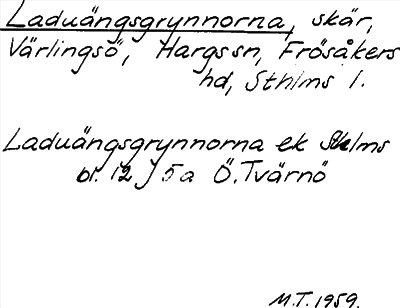 Laduängsgrynnorna, skär,
Värlingsö, Hargs sn, Frösåkers
hd, Sthlms l.
Laduängsgrynnorna ek Sthlms
bl. 12 J 5a Ö. Tvärnö
M.T. 1959.